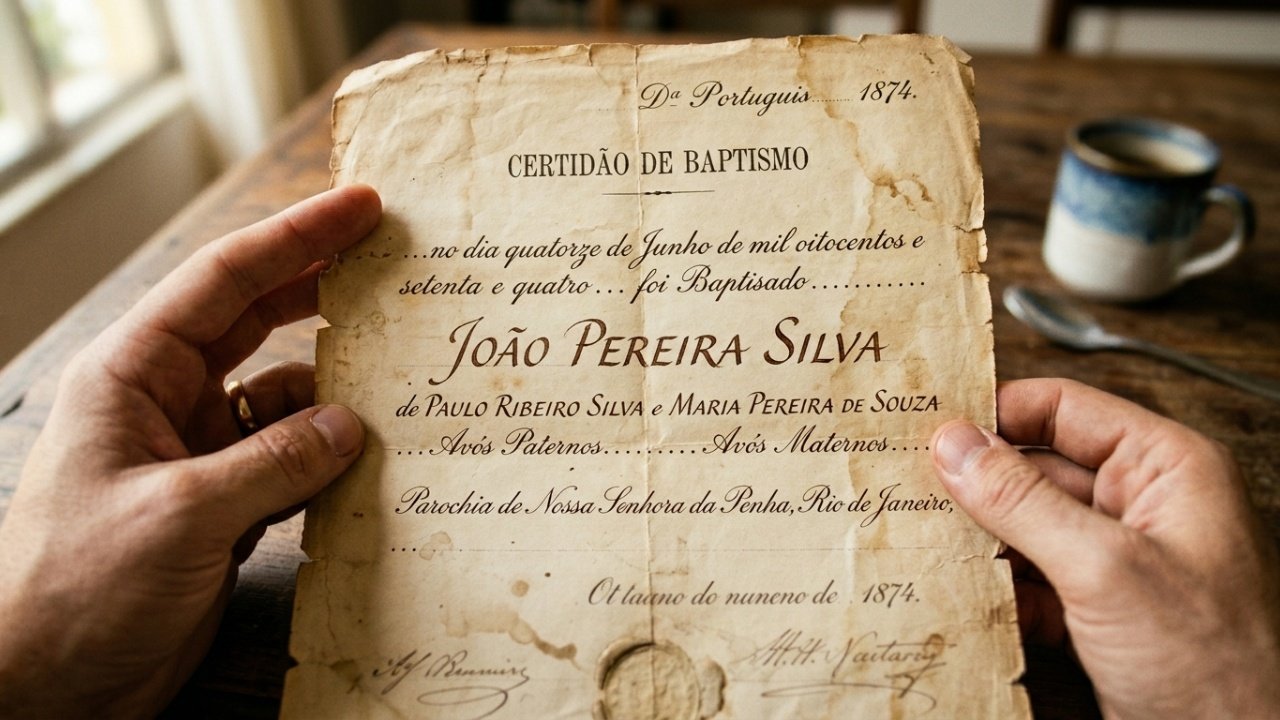 Dª Portuguis.......... 1874.
CERTIDÃO DE BAPTISMO
...no dia quatorze de Junho de mil oitocentos e
setenta e quatro... foi Baptisado...........
JOÃO PEREIRA SILVA
de PAULO RIBEIRO SILVA e MARIA PEREIRA DE SOUZA
...Avós Paternos.........Avós Maternos....
Parochia de Nossa Senhora da Penha, Rio de Janeiro,
...
do nuneno de 1874.